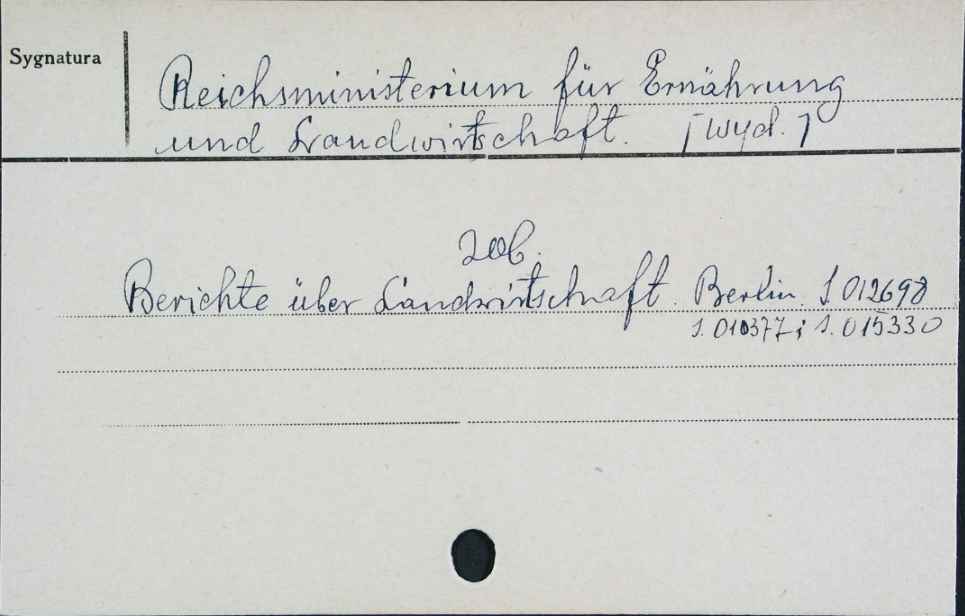 Sygnatura
Reichsministerium für Ernährung
und Landwirtschaft. [wyd.]
zob.
Berichte über Landwirtschaft. Berlin. S 012698
S. 010377; S. 015330